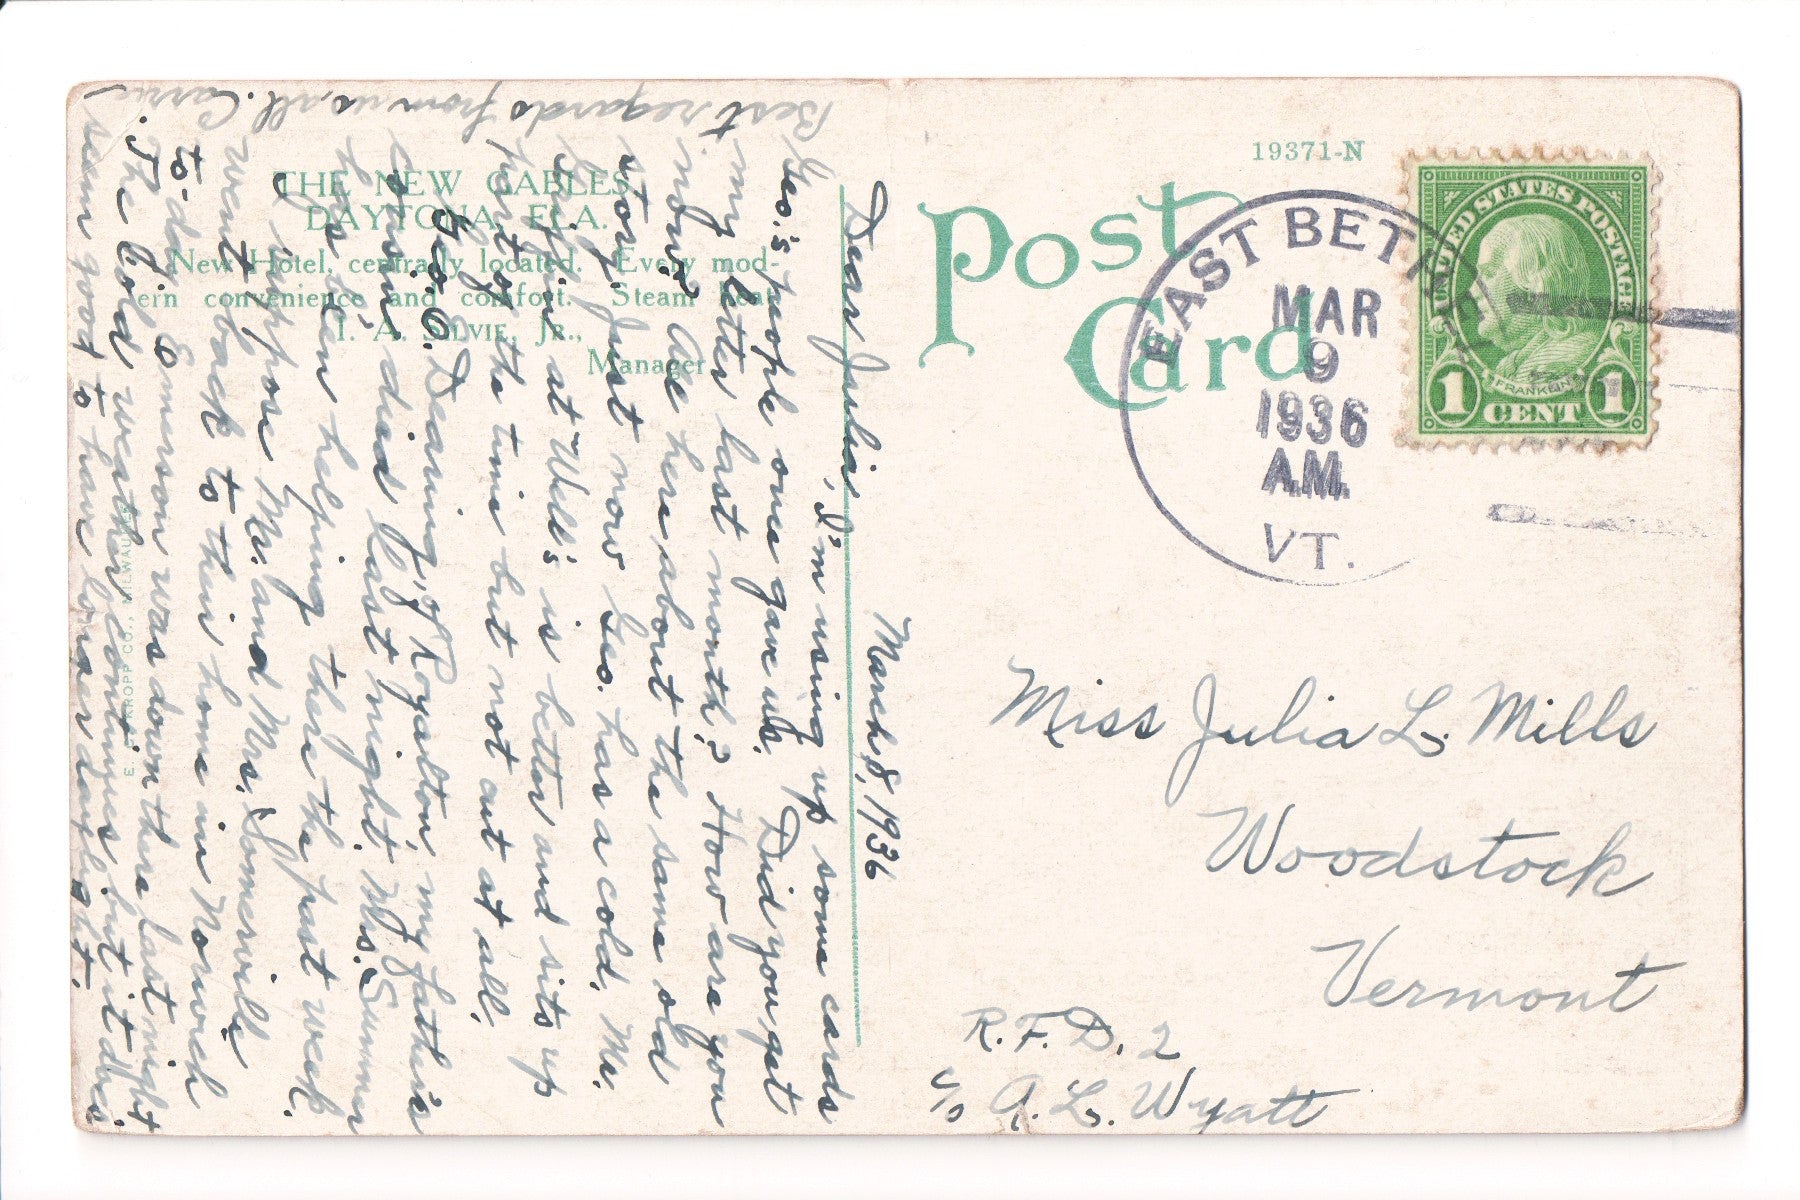 THE NEW GABLES,
DAYTONA, FLA.
New Hotel, centrally located. Every mod-
ern convenience and comfort. Steam heat.
I. A. SILVIE, JR.,
Manager.
E. C. KROPP CO., MILWAUKEE
19371-N
Post
Card
EAST BETHEL
MAR
9
1936
A.M.
VT.
UNITED STATES POSTAGE
FRANKLIN
1 CENT 1
March 8, 1936
Dear Julia, I'm using up some cards
Geo.'s people once gave us. Did you get
my letter last month? How are you
now? All here about the same old
story. Just now Geo. has a cold. Mr.
Griffin at Well's is better and sits up
part of the time but not out at all.
Geo. O. Dearing of Royalton, my father's
cousin died last night. Mrs. Sumner
has been helping there the past week.
I suppose Mr. and Mrs. Somerville
went back to their home in Norwich
to-day. Emerson was down there last night.
The cold weather continues but it does
seem good to have longer daylight.
Best regards from us all. Carrie
Miss Julia L. Mills
Woodstock
Vermont
R.F.D. 2
c/o A. L. Wyatt